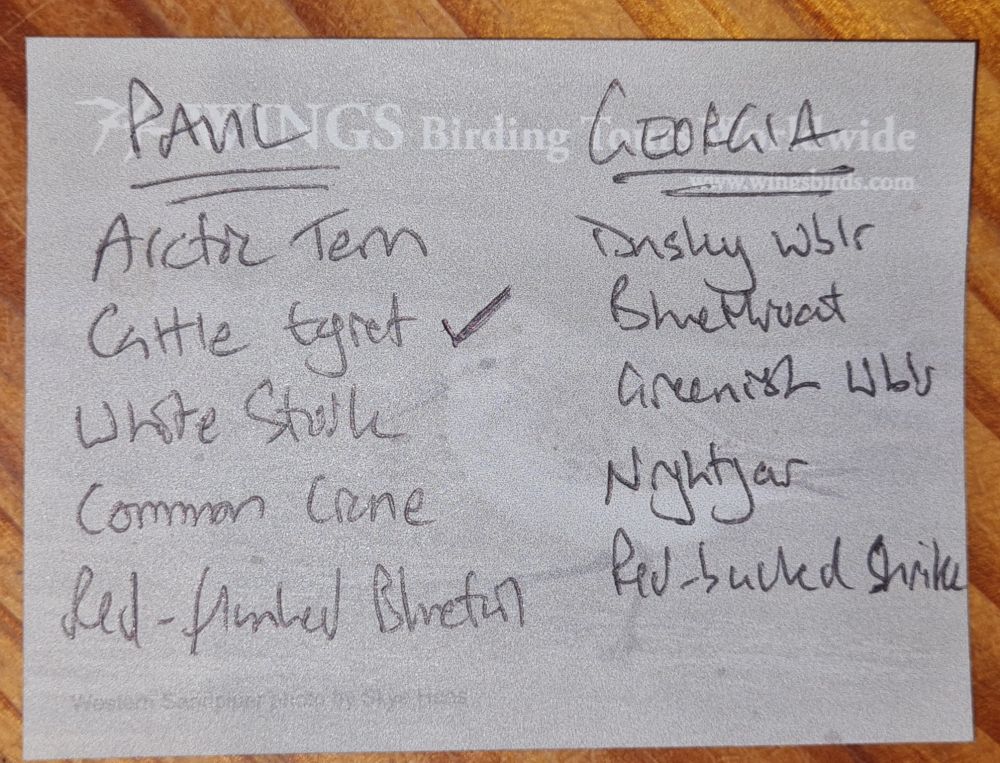 PAUL
GEORGIA
WINGS Birding Tours Worldwide
www.wingsbirds.com
Arctic Tern
Cattle Egret ✓
White Stork
Common Crane
Red-flanked Bluetail
Dusky Wblr
Bluethroat
Greenish Wblr
Nightjar
Red-backed Shrike
Western Sandpiper photo by Skye Haas